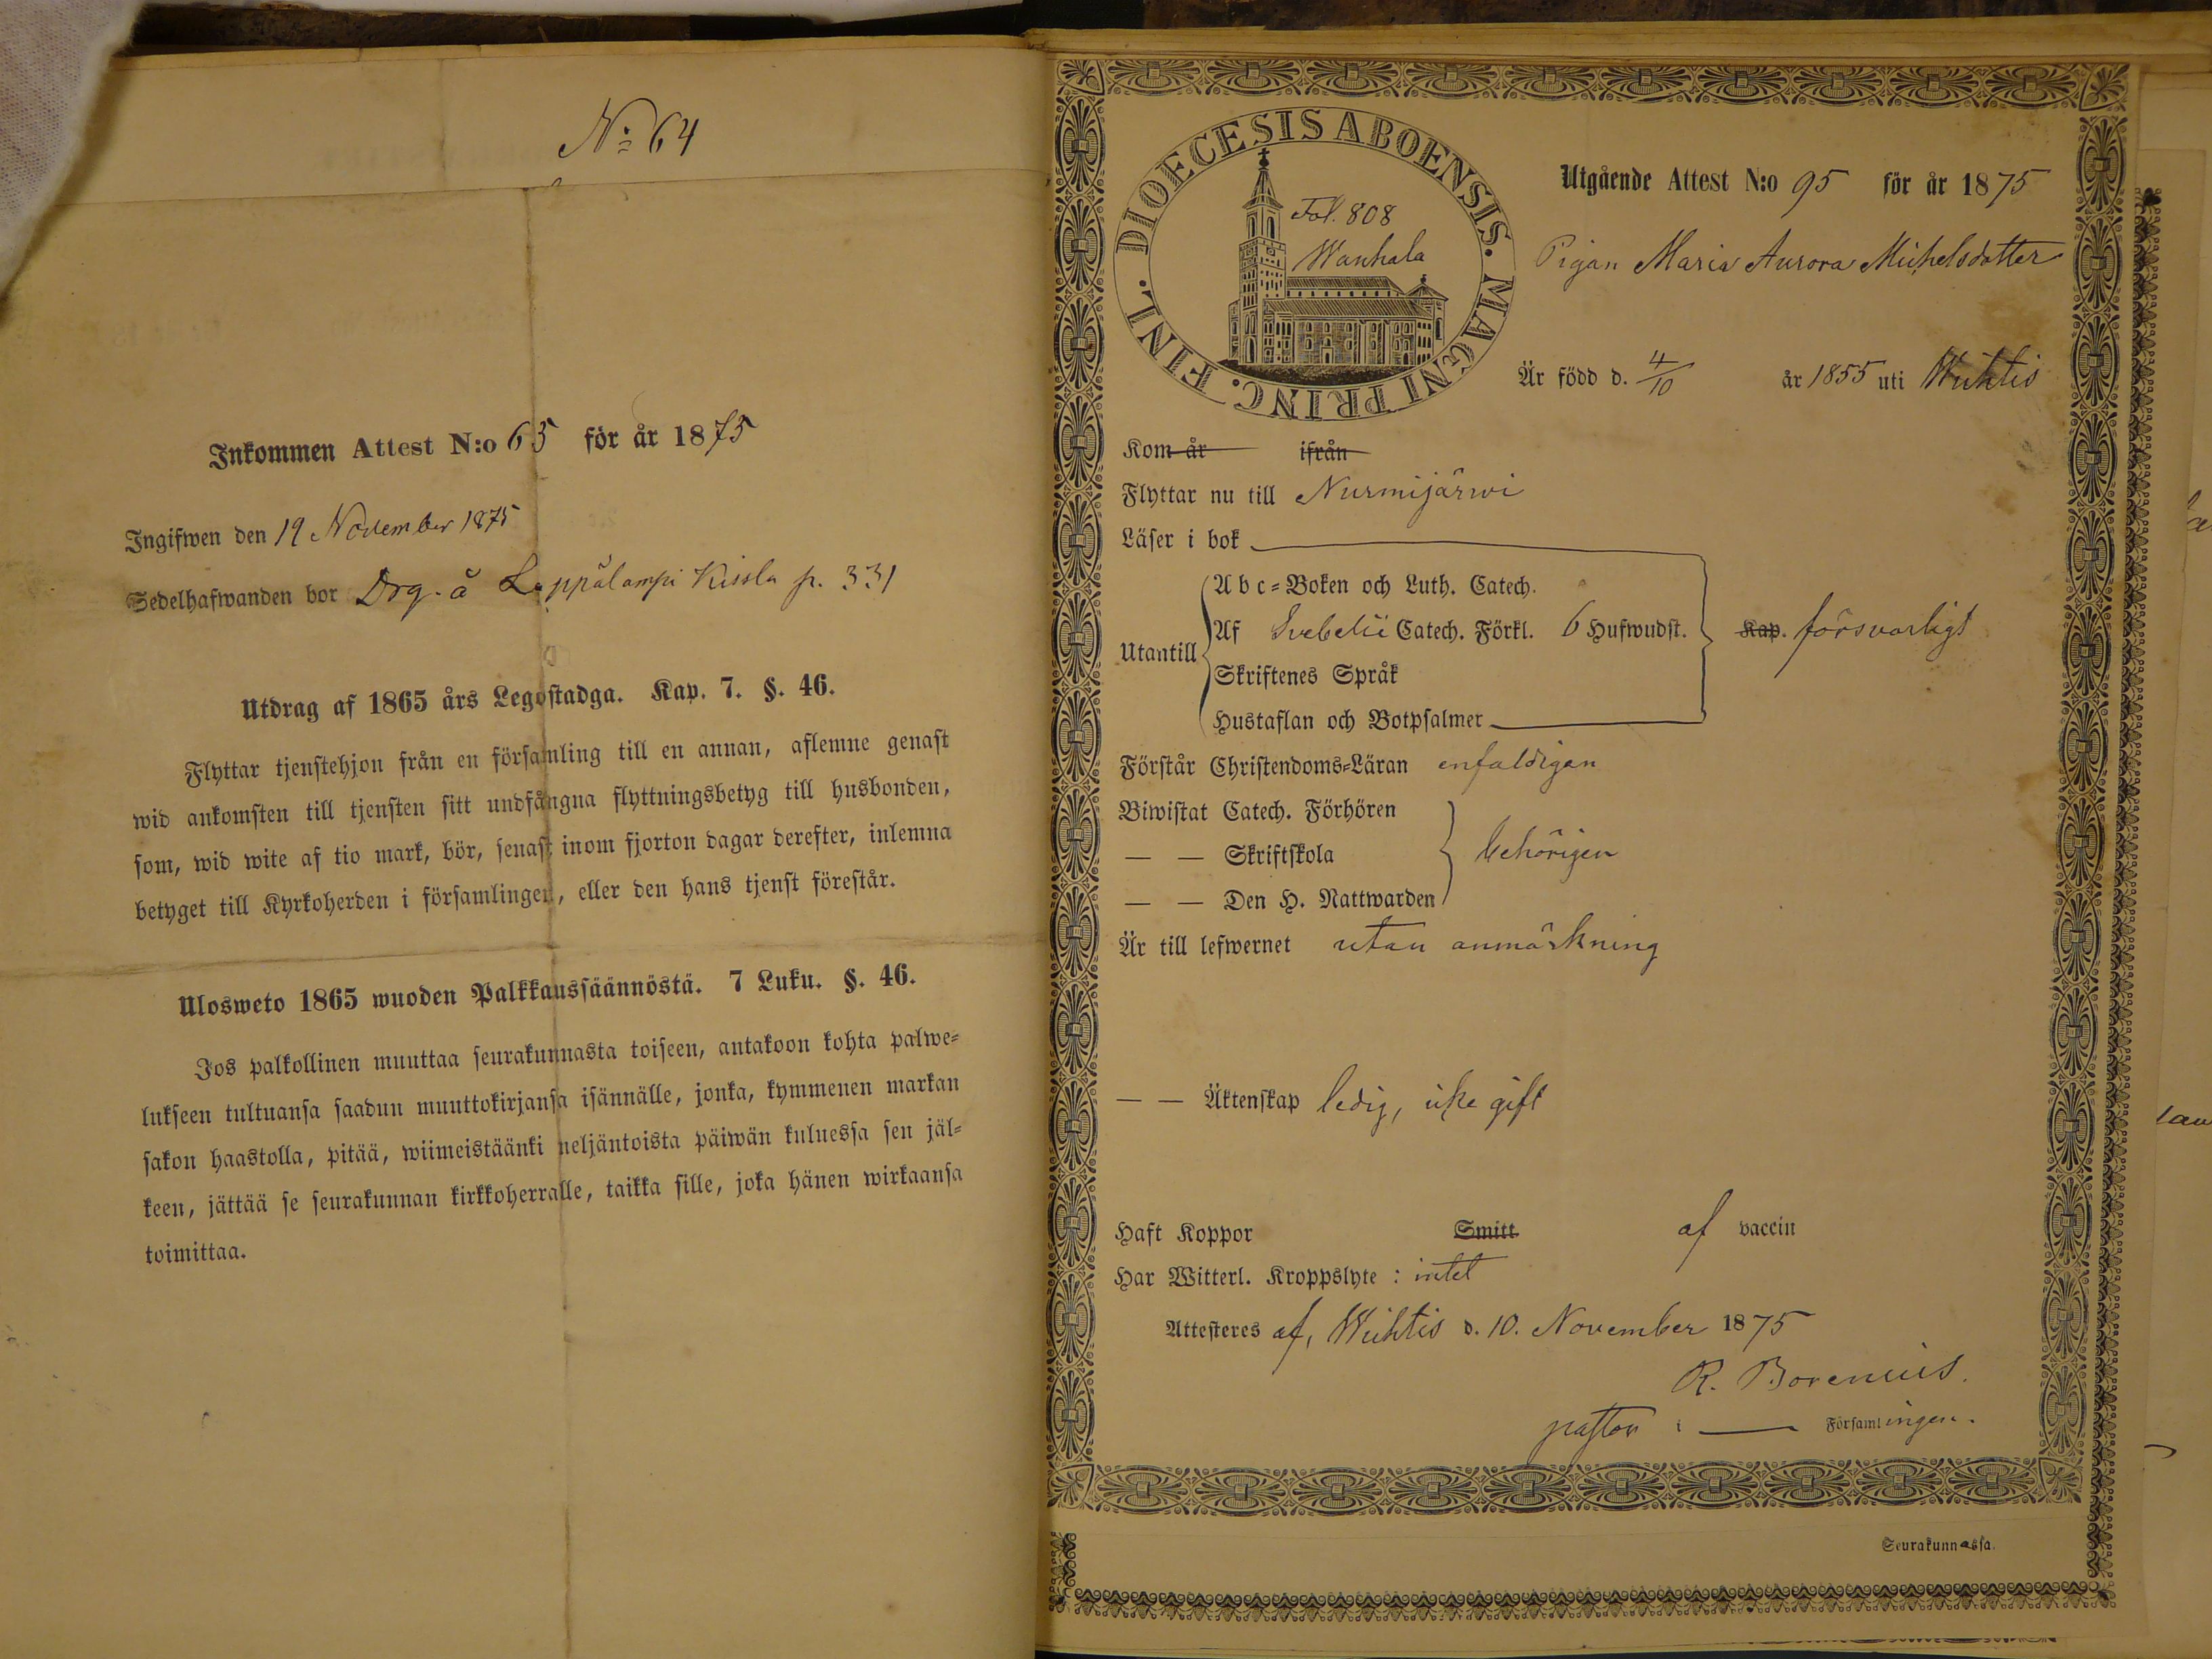 No 64
Inkommen Attest N:o 65 för år 1875
Ingifwen den 19 November 1875
Sedelhafwanden bor Drg. å Leppälampi Kissla p. 331
Utdrag af 1865 års Legostadga. Kap. 7. §. 46.
Flyttar tjenstehjon från en församling till en annan, aflemne genast
wid ankomsten till tjensten sitt undfångna flyttningsbetyg till husbonden,
som, wid wite af tio mark, bör, senast inom fjorton dagar derefter, inlemna
betyget till Kyrkoherden i församlingen, eller den hans tjenst förestår.
Ulosweto 1865 wuoden Palkkaussäännöstä. 7 Luku. §. 46.
Jos palkollinen muuttaa seurakunnasta toiseen, antakoon kohta palwe=
lukseen tultuansa saadun muuttokirjansa isännälle, jonka, kymmenen markan
sakon haastolla, pitää, wiimeistäänki neljäntoista päiwän kuluessa sen jäl=
keen, jättää se seurakunnan kirkkoherralle, taikka sille, joka hänen wirkaansa
toimittaa.
FINL. DIOECESIS ABOENSIS. MAGNI PRINC.
Fol. 808
Wanhala
Utgående Attest N:o 95 för år 1875
Pigan Maria Aurora Michelsdotter
Är född d. 4/10 år 1855 uti Wichtis
Kom år ifrån
Flyttar nu till Nurmijärwi
Läser i bok
Utantill
A b c=Boken och Luth. Catech.
Af Svebelii Catech. Förkl. 6 Hufwudst.
Skriftenes Språk
Hustaflan och Botpsalmer
Kap. försvarligt
Förstår Christendoms=Läran enfaldigan
Biwistat Catech. Förhören
— — Skriftskola
— — Den H. Nattwarden
behörigen
Är till lefwernet utan anmärkning
— — Äktenskap ledig, icke gift
Haft Koppor Smitt af vaccin
Har Witterl. Kroppslyte : intet
Attesteres af, Wichtis d. 10. November 1875
R. Borenius.
pastor i — Församlingen.
Seurakunnassa.